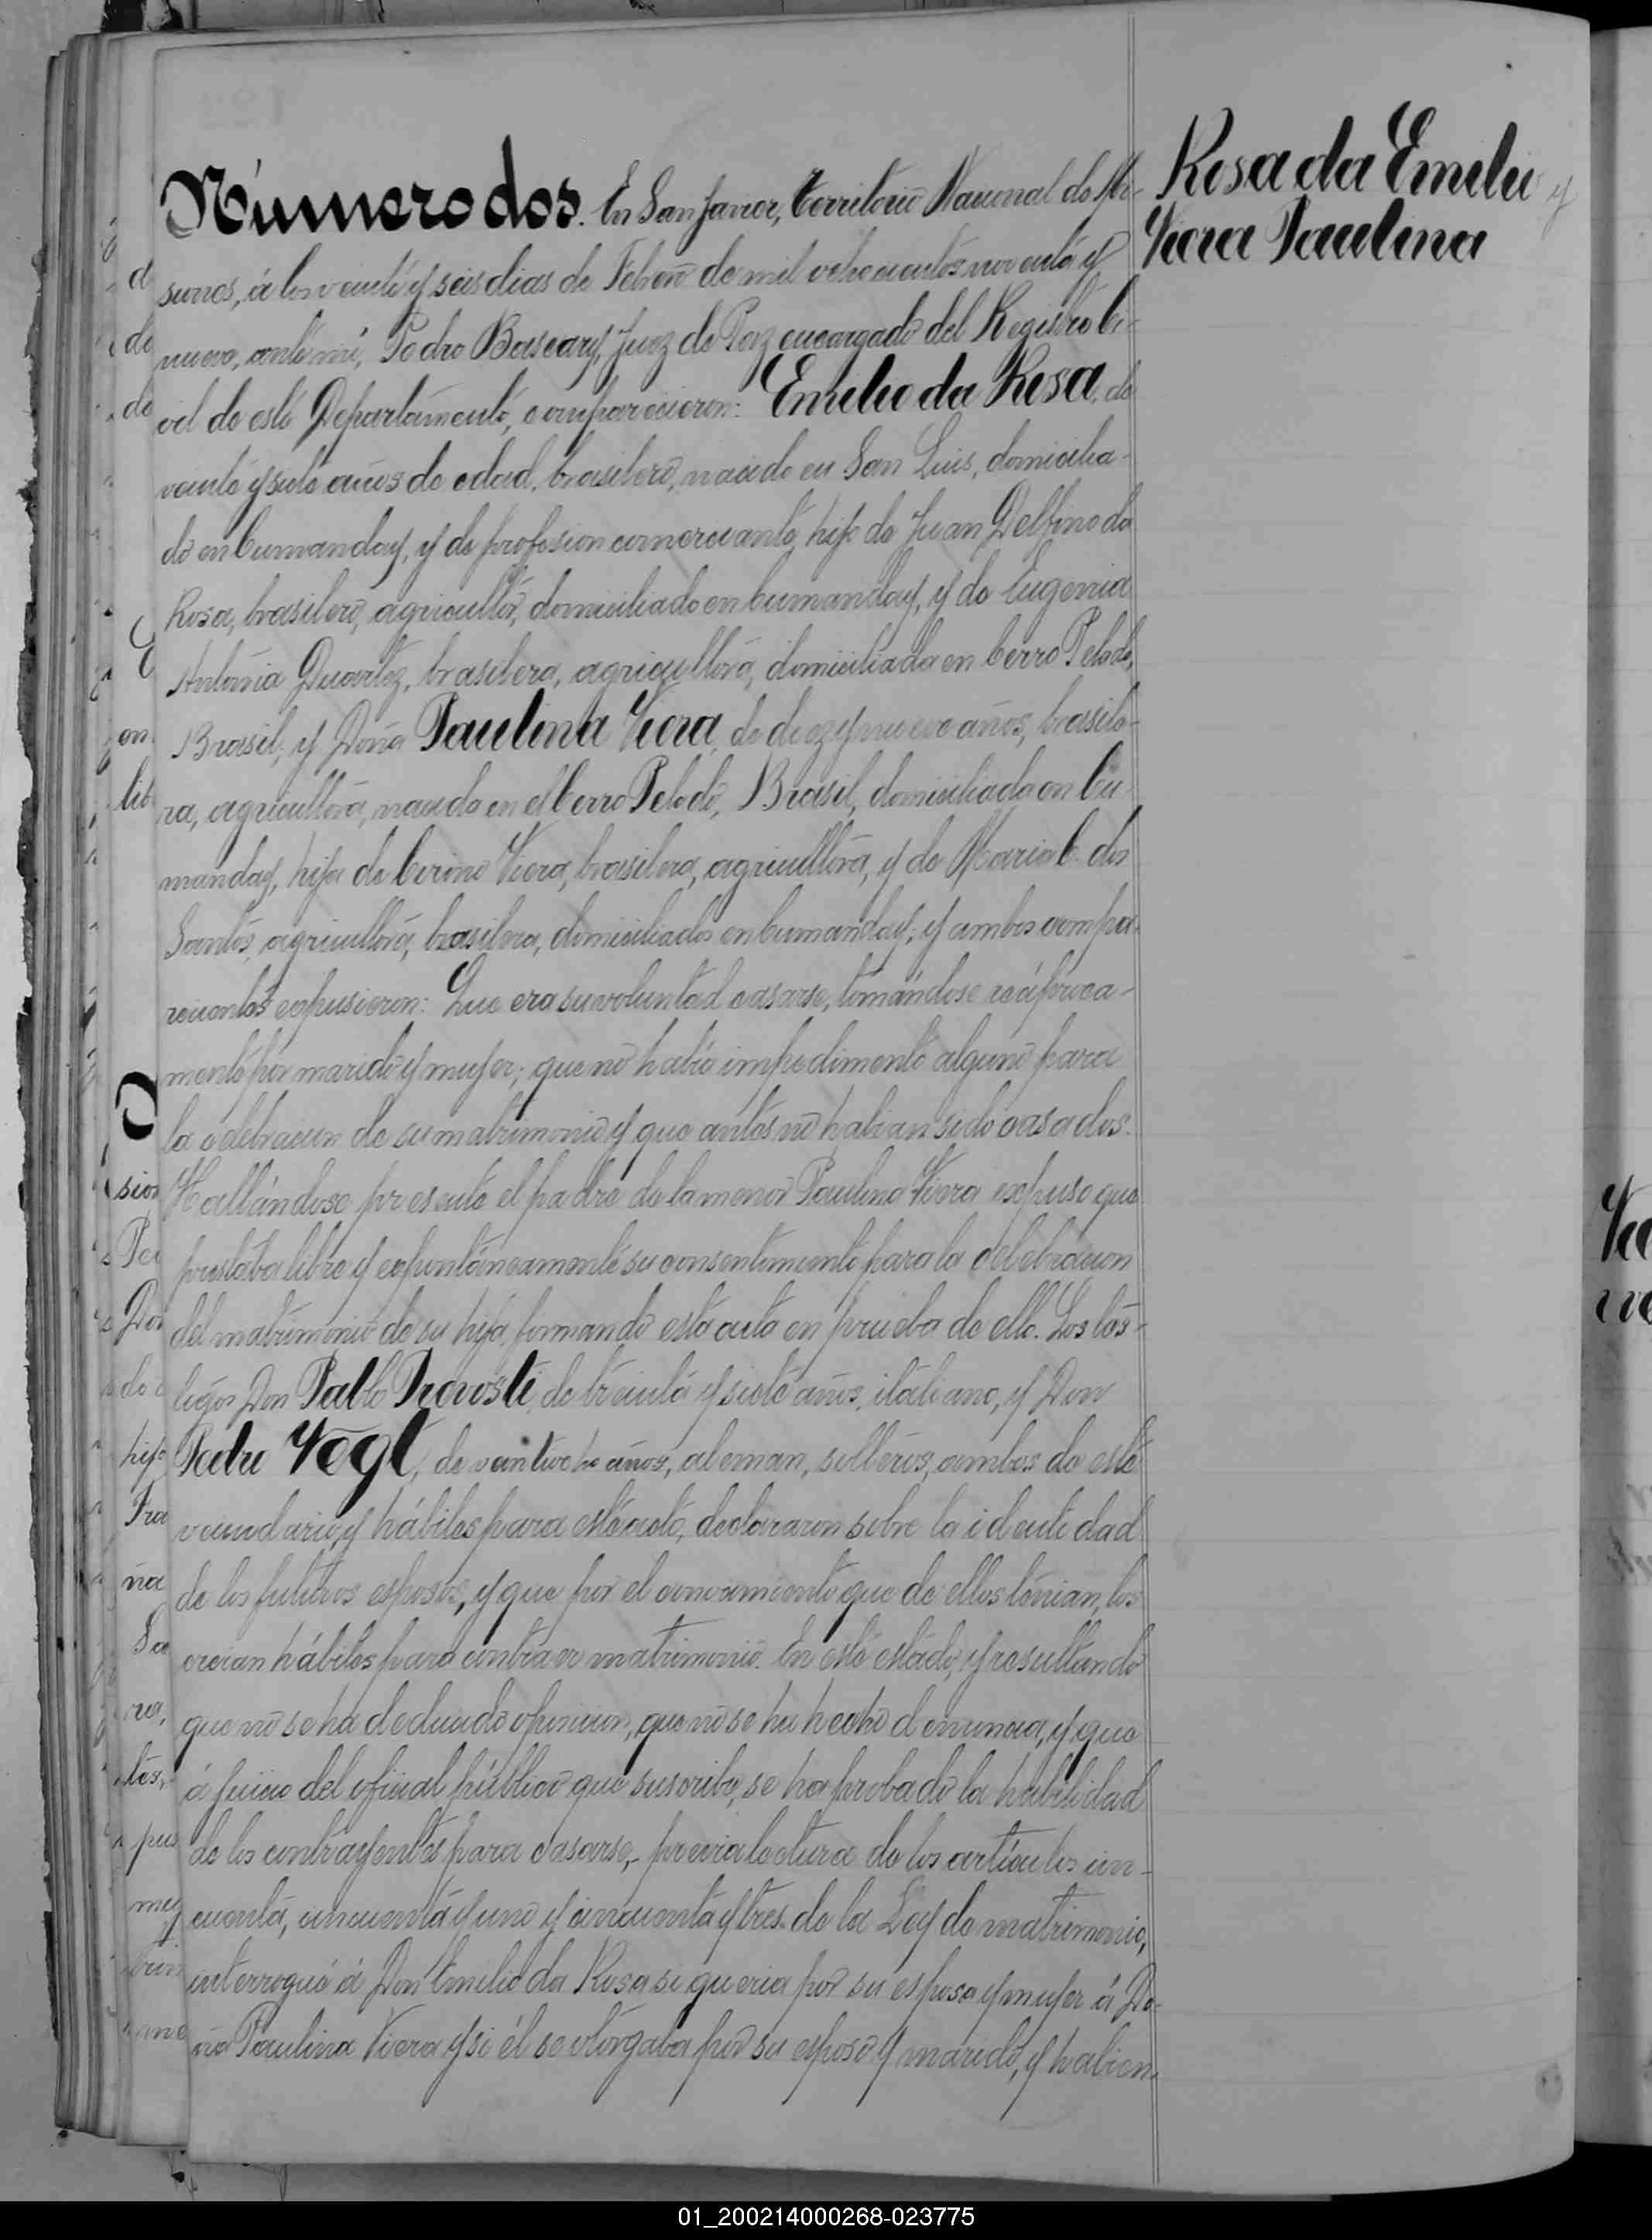 Rosa da Emilio y
Viera Paulina
Número dos. En San Javier, Territorio Nacional de Mi-
siones, á los veinte y seis dias de Febrero de mil ochocientos noventa y
nueve, ante mi, Pedro Bascary, Juez de Paz encargado del Registro Ci-
vil de este Departamento, comparecieron: Emilio da Rosa, de
veinte y siete años de edad, brasilero, nacido en San Luis, domicilia-
do en Cumanday, y de profesion comerciante, hijo de Juan Delfino da
Rosa, brasilero, agricultor, domiciliado en Cumanday, y de Eugenia
Antónia Duartez, brasilera, agricultora, domiciliada en Cerro Pelado,
Brasil; y Doña Paulina Viera, de diez y nueve años, brasile-
ra, agricultora, nacida en el Cerro Pelado, Brasil, domiciliada en Cu-
manday, hija de Cirino Viera, brasilero, agricultor, y de Maria C. dos
Santos, agricultora, brasilera, domiciliados en Cumanday; y ambos compa-
recientes expusieron: Que era su voluntad casarse, tomándose recíproca-
mente por marido y mujer; que no habia impedimento alguno para
la celebracion de su matrimonio y que antes no habian sido casados.
Hallándose presente el padre de la menor Paulina Viera expuso que
prestaba libre y expontáneamente su consentimiento para la celebracion
del matrimonio de su hija, firmando esta acta en prueba de ello. Los tes-
tigos Don Pablo Provosti, de treinta y siete años, italiano, y Don
Pedro Vogt, de veintiocho años, aleman, solteros, ambos de este
vecindario, y hábiles para este acto, declararon sobre la identidad
de los futuros esposos, y que por el conocimiento que de ellos tenian, los
creian hábiles para contraer matrimonio. En este estado, y resultando
que no se ha deducido oposicion, que no se ha hecho denuncia, y que
á juicio del oficial público que suscribe, se ha probado la habilidad
de los contrayentes para casarse, previa lectura de los artículos cin-
cuenta, cincuenta y uno y cincuenta y tres de la Ley de matrimonio,
interrogué á Don Emilio da Rosa si queria por su esposa y mujer á Do-
ña Paulina Viera y si él se otorgaba por su esposo y marido, y habien-
01_200214000268-023775